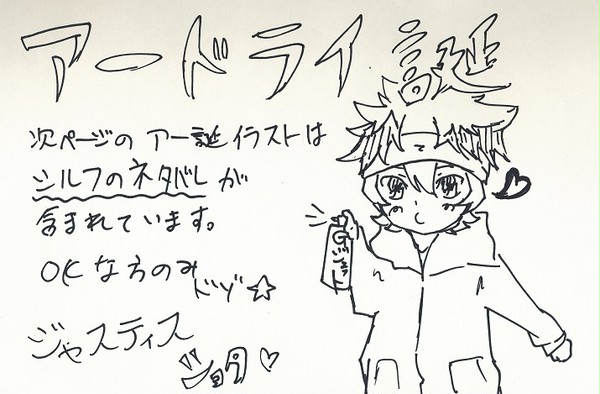 アードライ誕
次ページの アー誕イラストは
シルフのネタバレ が
含まれています。
OKな方のみ
ドゾ☆
ジャスティス
ショタ♡